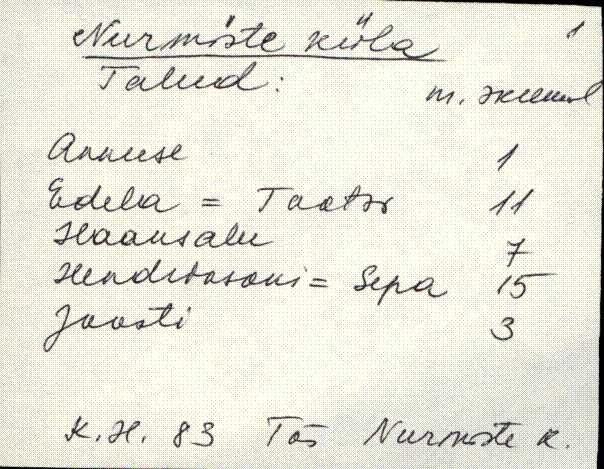 Nurmiste küla 1
Talud:
Annuse 1
Edela = Tootsi 11
Haansalu 7
Hendriksoni = Sepa 15
Joosti 3
K.H. 83 Tõs Nurmiste k.